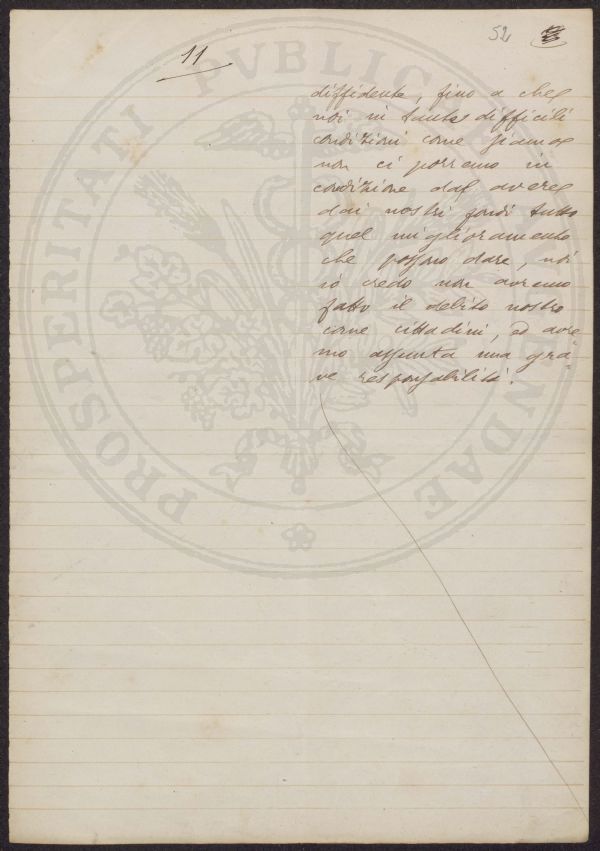 52
11
diffidente, fino a che
noi in tante difficili
condizioni come siamo
non ci porremo in
condizione dal avere
dai nostri fondi tutto
quel miglioramento
che possono dare, noi
io credo non avremo
fatto il debito nostro
come cittadini, ed avre-
mo assunta una gra-
ve responsabilità.
PROSPERITATI PVBLICAE